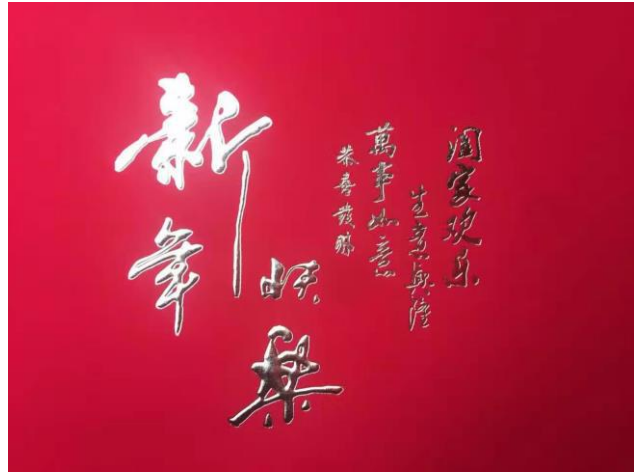 新年
快樂
阖家欢乐
生意興隆
萬事如意
恭喜發财